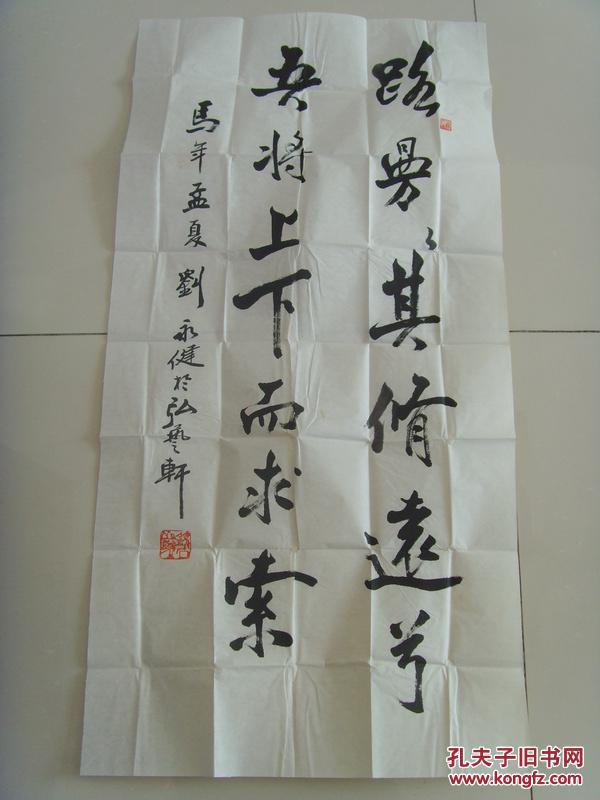 路曼〻其脩遠兮
吾将上下而求索
馬年孟夏 劉永健於弘藝軒
孔夫子旧书网
www.kongfz.com